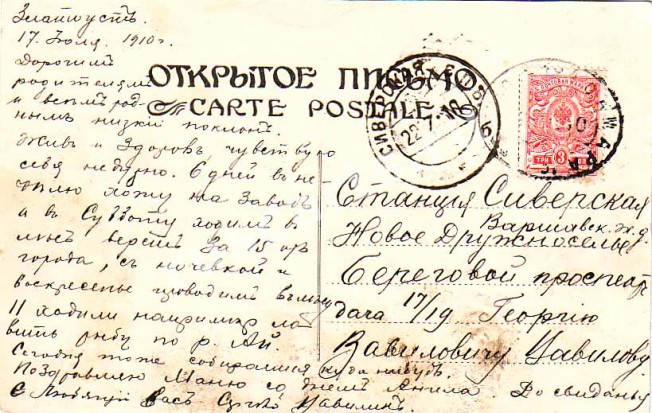 Златоустъ.
17 Июля 1910 г.
Дорогимъ
родителямъ
и всѣмъ род-
нымъ низкій поклонъ.
Живъ и здоровъ, чувствую
себя недурно. 6 дней въ не-
дѣлю хожу на Заводъ
а въ Субботу ходимъ въ
верстъ за 15 отъ
города, съ ночевкой и
воскресенье проводимъ въ
11 ходили напримѣръ ло-
вить рыбу по р. Ай.
Сегодня тоже собираемся куда нибудь
Поздравляю Маню со днемъ Ангела. До свиданья
Любящій Васъ
ОТКРЫТОЕ ПИСЬМО
CARTE POSTALE
СИВЕРСКАЯ
22 7 10
МАРКА
ТРИ 3
Станція Сиверская
Варшавск. ж. д.
Новое Дружноселье
Береговой проспектъ
дача 17/19 Георгію
Вавиловичу Цавилову